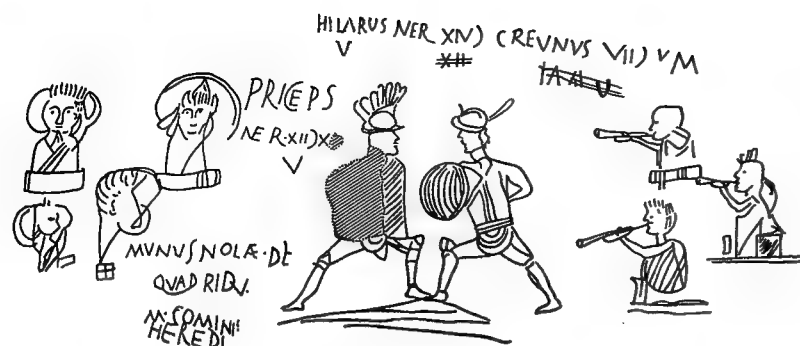 HILARUS NER XIV) CREUNUS VII) V M
V
XII
PRICEPS
NER·XII)X
V
MUNUS NOLÆ·DE
QUADRIDU.
M·COMINII
HEREDI